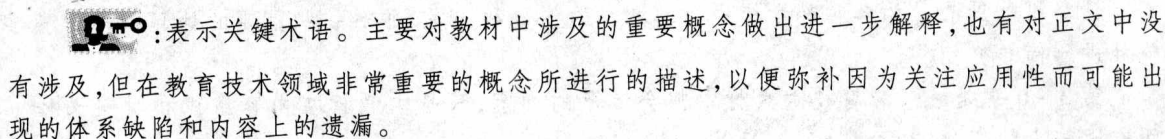 :表示关键术语。主要对教材中涉及的重要概念做出进一步解释,也有对正文中没
有涉及,但在教育技术领域非常重要的概念所进行的描述,以便弥补因为关注应用性而可能出
现的体系缺陷和内容上的遗漏。